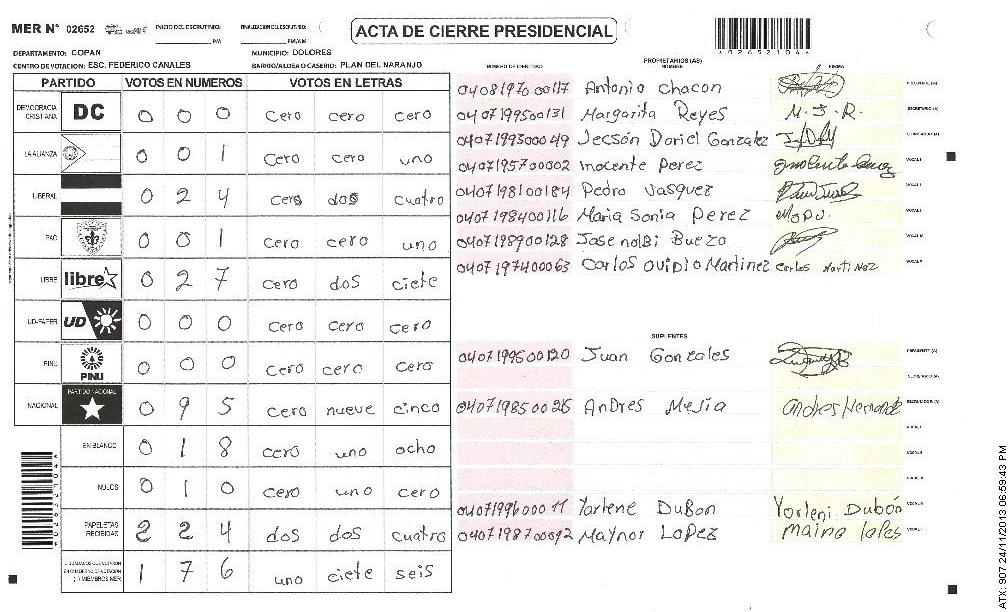 MER N° 02652 INICIO DEL ESCRUTINIO: FINALIZACION DEL ESCRUTINIO:
ACTA DE CIERRE PRESIDENCIAL
PM PM/AM
DEPARTAMENTO: COPAN MUNICIPIO: DOLORES
CENTRO DE VOTACION: ESC. FEDERICO CANALES BARRIO/ALDEA O CASERIO: PLAN DEL NARANJO
PARTIDO VOTOS EN NUMEROS VOTOS EN LETRAS
DEMOCRACIA CRISTIANA DC 0 0 0 cero cero cero
LA ALIANZA 0 0 1 cero cero uno
LIBERAL 0 2 4 cero dos cuatro
PAC 0 0 1 cero cero uno
LIBRE libre 0 2 7 cero dos ciete
UD-FAPER UD 0 0 0 cero cero cero
PINU PINU 0 0 0 cero cero cero
NACIONAL PARTIDO NACIONAL 0 9 5 cero nueve cinco
EN BLANCO 0 1 8 cero uno ocho
NULOS 0 1 0 cero uno cero
PAPELETAS RECIBIDAS 2 2 4 dos dos cuatro
CIUDADANOS QUE VOTARON EN CUADERNO DE VOTACION (+) MIEMBROS MER 1 7 6 uno ciete seis
PROPIETARIOS (AS)
NUMERO DE IDENTIDAD NOMBRE FIRMA
0408197000117 Antonio chacon PRESIDENTE (A)
0407199500131 Margarita Reyes M.J.R. SECRETARIO (A)
0407199300049 Jecsón Doriel Gonzalez
0407195700002 inocente Perez VOCAL I
0407198100184 Pedro Vasquez
0407198400116 Maria Sonia Perez
0407198900128 Jose nolbi Buezo
0407197400063 Carlos Ovidio Martinez Carlos Martinez
SUPLENTES
0407199500120 Juan Gonzales PRESIDENTE (A)
SECRETARIO (A)
04071985 Andres Mejia ESCRUTADOR (A)
Yarlene DuBon Yorleni Dubón
0407198700092 Maynor Lopez maino lopes
ATX: 907 24/11/2013 06:59:43 PM